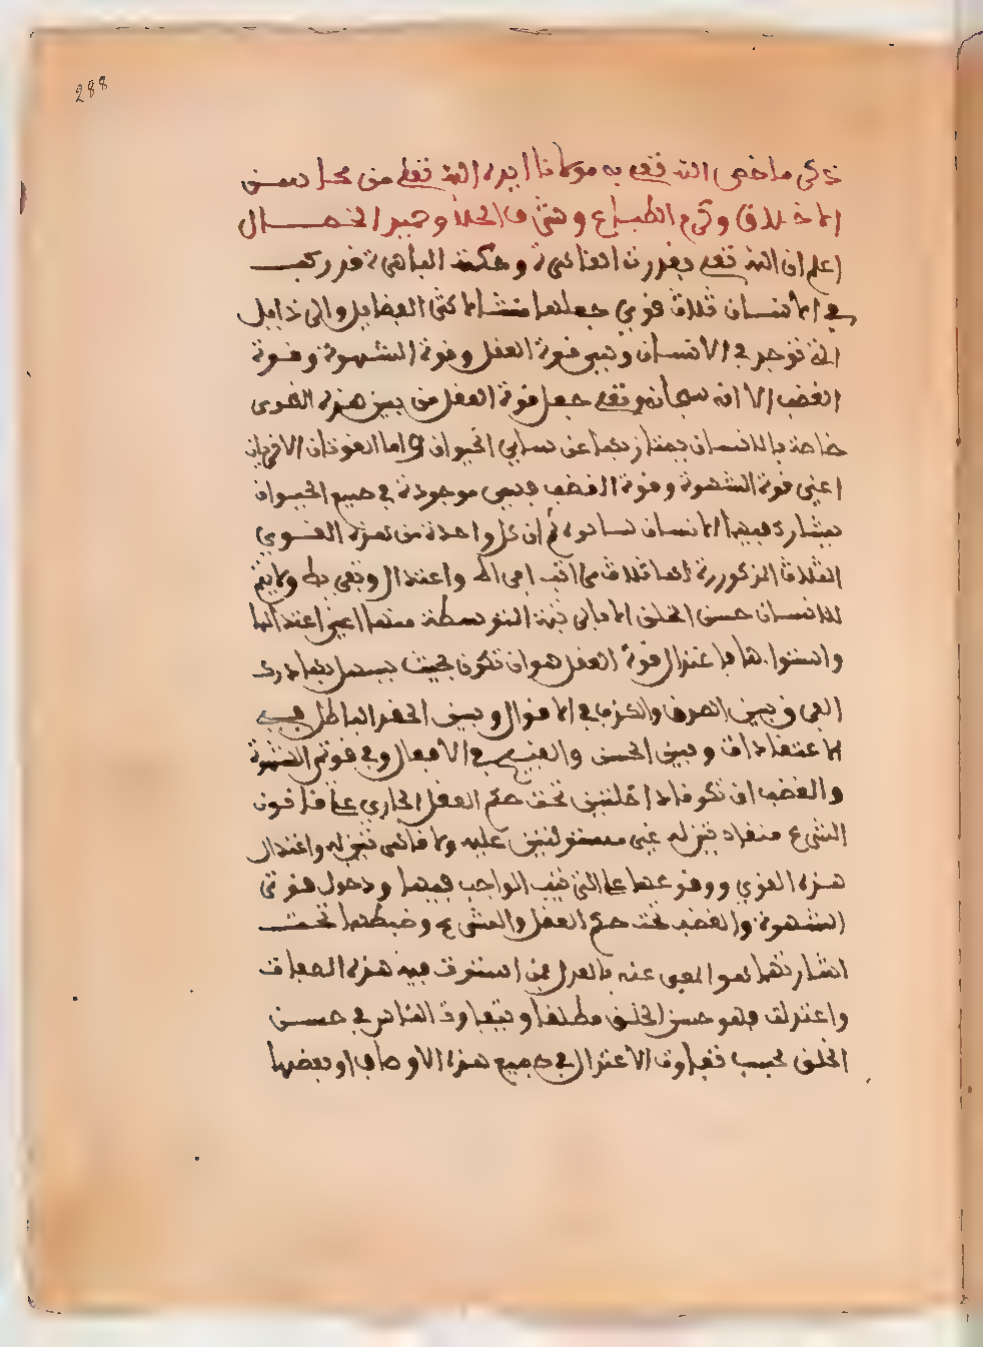 288
ذكر ما خص الله تعلى به مولانا ايده الله تعلى من محاسن
الاخلاق وكرم الطباع وشرف الخلا وحميد الخصال
اعلم ان الله تعلى بقدرته القاهرة وحكمته الباهرة قد ركب
في الانسان ثلاث قوى جعلها منشا لاكثر الفضايل والرذايل
التي توجد في الانسان وهي قوة العقل وقوة الشهوة وقوة
الغضب الا انه سبحانه وتعلى جعل قوة العقل من بين هذه القوى
خاصة بالانسان يمتاز بها عن ساير الحيوان واما القوتان الاخريان
اعني قوة الشهوة وقوة الغضب فهي موجودة في جميع الحيوان
يشارك فيها الانسان سايره ثم ان كل واحدة من هذه القوي
الثلاث المذكورة لها ثلاث مراتب افراط واعتدال وتفريط ولا يتم
للانسان حسن الخلق الا بالرتبة المتوسطة منها اعني اعتدالها
واستواها فاعتدال قوة العقل هو ان تكون بحيث يسهل بها درك
الفرق بين الصدق والكذب في الاقوال وبين الحق والباطل في
الاعتقادات وبين الحسن والقبيح في الافعال وفي قوتي الشهوة
والغضب ان تكونا داخلتين تحت حكم العقل الجاري على قانون
الشرع منقادتين له غير مستوليتين عليه ولا قاهرتين له واعتدال
هذه القوى ووقوعها على الترتيب الواجب فيها ودخول قوتي
الشهوة والغضب تحت حكم العقل والشرع وضبطهما تحت
اشارتهما هو المعبر عنه بالعدل فمن استوت فيه هذه الصفات
واعتدلت فهو حسن الخلق مطلقا ويتفاوت الناس في حسن
الخلق بحسب تفاوت الاعتدال في جميع هذه الاوصاف او بعضها